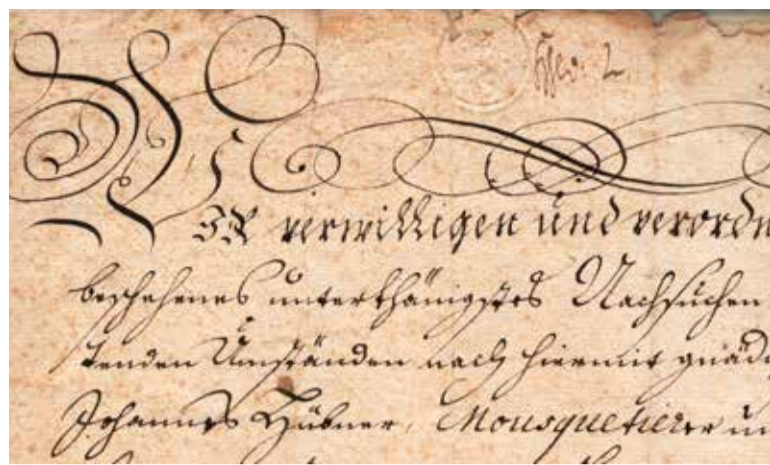 WIR verwilligen und verordn
beschehenes unterthänigstes Nachsuchen
tenden Umständen nach hiermit gnäd
Johannes Hübner, Mousquetierer un